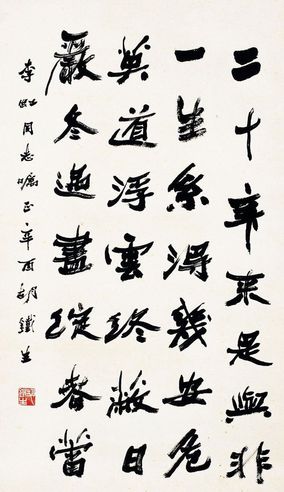 二十年来是與非
一生系得幾安危
莫道浮雲终蔽日
嚴冬過盡绽春蕾
李虹同志嘱正辛酉胡鐵生